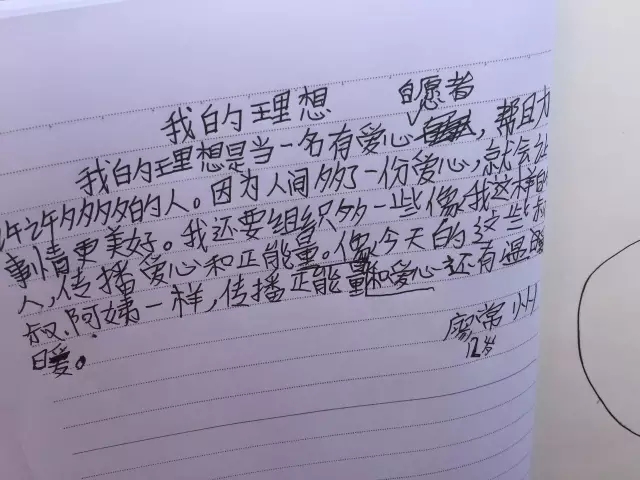 我的理想
自愿者
我的理想是当一名有爱心，帮
许许多多的人。因为人间多了一份爱心，就会让
事情更美好。我还要组织多一些像我这样的
人，传播爱心和正能量。像今天的这些叔
叔、阿姨一样，传播正能量和爱心还有温暖
暖。
廖常州
12岁